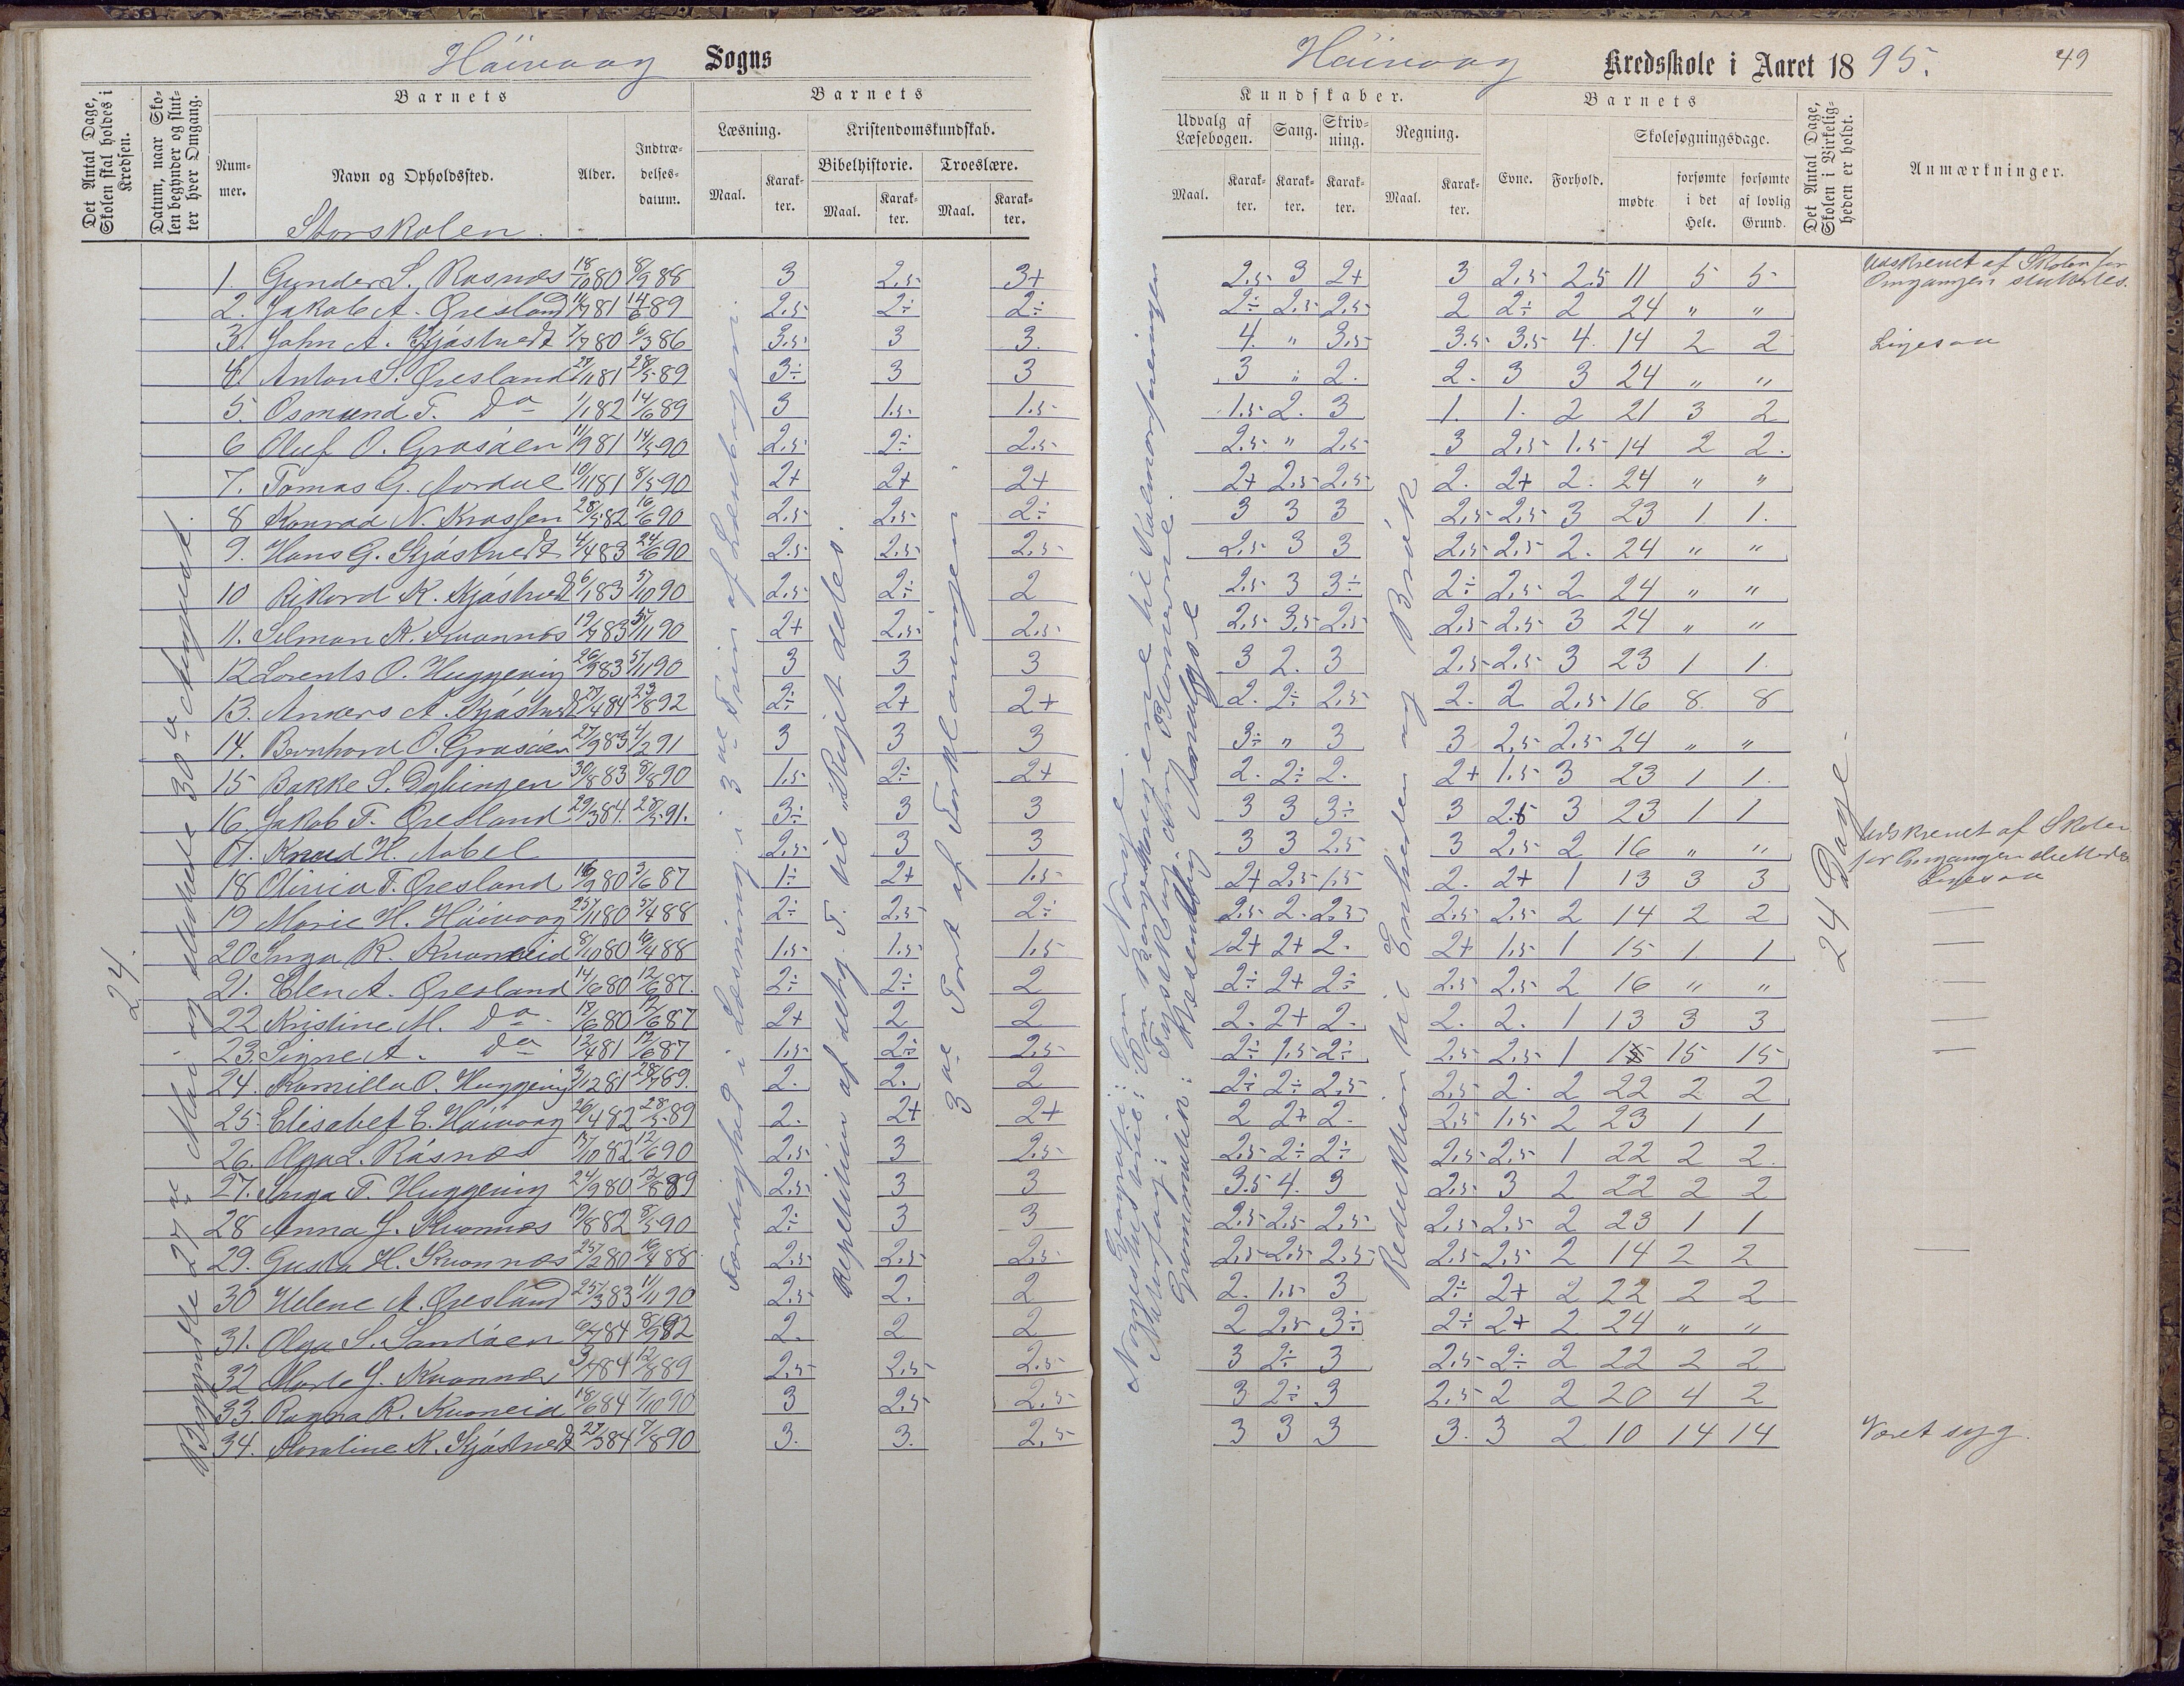 Håivaag Sogns
Håivaag Kredsskole i Aaret 1895. 49
Det Antal Dage, Skolen skal holdes i Kredsen.
Datum, naar Skolen begynder og slutter hver Omgang.
Barnets
Nummer.
Navn og Opholdssted.
Alder.
Indtrædelsesdatum.
Barnets
Læsning.
Maal.
Karakter.
Kristendomskundskab.
Bibelhistorie.
Maal.
Karakter.
Troeslære.
Maal.
Karakter.
Kundskaber.
Udvalg af Læsebogen.
Maal.
Karakter.
Sang.
Karakter.
Skrivning.
Karakter.
Regning.
Maal.
Karakter.
Barnets
Evne.
Forhold.
Skolesøgningsdage.
mødte
forsømte i det Hele.
forsømte af lovlig Grund.
Det Antal Dage, Skolen i Virkeligheden er holdt.
Anmærkninger.
Storskolen.
1. Gunder S. Rasnæs 18/10 80 8/9 88 3 2,5 3+ 2,5 3 2+ 3 2,5 2,5 11 5 5 Udskrevet af Skolen før Omgangen sluttedes.
2. Jakob A. Øresland 11/7 81 14/6 89 2,5 2÷ 2÷ 2÷ 2,5 2,5 2 2÷ 2 24 " "
3. John A. Kjøstvedt 7/7 80 6/3 86 3,5 3 3. 4. " 3,5 3,5 3,5 4. 14 2 2 Ligesaa
4. Anton S. Øresland 27/11 81 28/5 89 3÷ 3 3 3 " 2. 2. 3 3 24 " "
5. Osmund T. Do 1/1 82 14/6 89 3 1,5 1,5 1,5 2. 3 1. 1. 2 21 3 2
6 Oluf O. Grasåen 11/9 81 14/5 90 2,5 2÷ 2,5 2,5 " 2,5 3 2,5 1,5 14 2 2.
7. Tomas G. Aordal 10/11 81 8/5 90 2+ 2+ 2+ 2+ 2,5 2,5 2. 2+ 2. 24 " "
8 Konrad N. Krossen 28/5 82 16/6 90 2,5 2,5 2÷ 3 3 3 2,5 2,5 3 23 1 1.
9. Hans G. Kjøstvedt 4/4 83 24/6 90 2,5 2,5 2,5 2,5 3 3 2,5 2,5 2. 24 " "
10 Rikard K. Kjøstvedt 6/1 83 5/10 90 2,5 2÷ 2 2,5 3 3÷ 2÷ 2,5 2 24 " "
11. Selmar K. Kvannes 19/7 83 5/11 90 2+ 2,5 2,5 2,5 3,5 2,5 2,5 2,5 3 24 " "
12 Lorents O. Huggevig 26/9 83 5/11 90 3 3 3 3 2. 3 2,5 2,5 3 23 1 1.
13. Anders A. Kjøstvedt 27/4 84 23/8 92 2÷ 2+ 2+ 2. 2÷ 2,5 2. 2 2,5 16 8 8
14. Bernhard O. Grasåen 27/9 83 4/2 91 3 3 3 3÷ " 3 3 2,5 2,5 24 " "
15 Bakke S. Dybingen 30/8 83 8/8 90 1,5 2÷ 2+ 2. 2÷ 2. 2+ 1,5 3 23 1 1.
16. Jakob T. Øresland 29/3 84. 28/5 91. 3÷ 3 3 3 3 3÷ 3 2,5 3 23 1 1
17. Knud H. Aabel 2,5 3 3 3 3 2,5 3 2,5 2 16 " " Udskrevet af Skolen før Omgangen sluttedes
18 Olivia T. Øresland 16/9 80 3/6 87 1÷ 2+ 1,5 2+ 2,5 1,5 2. 2+ 1 13 3 3 Ligesaa
19 Marie H. Håivaag 25/11 80 5/4 88 2÷ 2,5 2÷ 2,5 2. 2,5 2,5 2,5 2 14 2 2 —
20 Inga R. Kvaneid 8/10 80 10/4 88 1,5 1,5 1,5 2+ 2+ 2. 2+ 1,5 1 15 1 1 —
21. Elen A. Øresland 14/6 80 12/6 87. 2÷ 2÷ 2 2÷ 2+ 2÷ 2,5 2,5 2 16 " " —
22 Kristine M. Do 19/6 80 12/6 87 2+ 2 2 2. 2+ 2. 2. 2. 1 13 3 3 —
23. Signe A. Do 12/4 81 12/6 87 1,5 2÷ 2,5 2÷ 1,5 2÷ 2,5 2,5 1 15 15 15 —
24. Kamilla O. Huggevig 3/12 81 28/7 89. 2. 2. 2 2÷ 2÷ 2,5 2,5 2. 2 22 2 2
25. Elisabet E. Håivaag 26/4 82 28/5 89 2. 2+ 2+ 2 2+ 2. 2,5 1,5 2 23 1 1
26. Olga L. Råsnæs 17/10 82 12/6 90 2,5 3 2,5 2,5 2÷ 2÷ 2,5 2,5 1 22 2 2.
27. Inga T. Huggevig 24/9 80 12/8 89 2,5 3 3 3,5 4. 3 2,5 3 2 22 2 2
28 Anna J. Kvannes 19/8 82 8/5 90 2÷ 3 3 2,5 2,5 2,5 2,5 2,5 2 23 1 1
29. Gusta H. Kvannes 25/2 80 16/4 88 2,5 2,5 2,5 2,5 2,5 2,5 2,5 2,5 2 14 2 2 —
30 Helene A. Øresland 25/3 83 11/11 90 2,5 2. 2 2. 1,5 3 2÷ 2+ 2 22 2 2
31. Olga S. Sandåen 6/7 84 8/9 92 2. 2 2 2 2,5 3÷ 2÷ 2+ 2 24 " "
32 Marte J. Kvannes 3/4 84 12/8 89 2,5 2,5 2,5 3 2÷ 3 2,5 2÷ 2 22 2 2
33. Ragna R. Kvaneid 18/6 84 7/10 90 3 2,5 2,5 3 2÷ 3 2,5 2 2 20 4 2
34. Karoline K. Kjøstvedt 27/3 84 7/8 90 3. 3. 2,5 3 3 3 3. 3 2 10 14 14 Været syg.
24.
Begyndte 27de Mai og sluttede 30te August.
Færdighed i Læsning i 3die Trin af Læsebogen.
Repetition af det g. T. til "Riget deles.
3die Part af Forklaringen.
Geografi: Om Norge.
Norgeshistorie: Om Borgerkrigene til Kalmarforeningen
Naturfag:
Grammatik: Analyse
Reduktion til Enheden og Brøk
24 Dage.